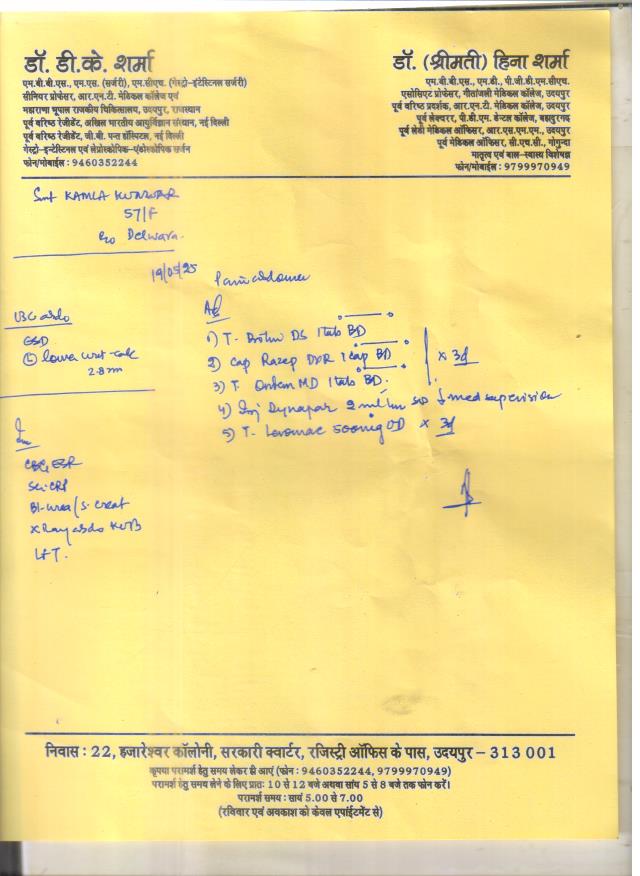 डॉ. डी.के. शर्मा
एम.बी.बी.एस., एम.एस. (सर्जरी), एम.सीएच. (गेस्ट्रो-इंटेस्टिनल सर्जरी)
सीनियर प्रोफेसर, आर.एन.टी. मेडिकल कॉलेज एवं
महाराणा भूपाल राजकीय चिकित्सालय, उदयपुर, राजस्थान
पूर्व वरिष्ठ रेजीडेंट, अखिल भारतीय आयुर्विज्ञान संस्थान, नई दिल्ली
पूर्व वरिष्ठ रेजीडेंट, जी.बी. पन्त हॉस्पिटल, नई दिल्ली
गेस्ट्रो-इन्टेस्टिनल एवं लेप्रोस्कोपिक-एंडोस्कोपिक सर्जन
फोन/मोबाईल : 9460352244
डॉ. (श्रीमती) हिना शर्मा
एम.बी.बी.एस., एम.डी., पी.जी.डी.एम.सीएच.
एसोसिएट प्रोफेसर, गीतांजली मेडिकल कॉलेज, उदयपुर
पूर्व वरिष्ठ प्रदर्शक, आर.एन.टी. मेडिकल कॉलेज, उदयपुर
पूर्व लेक्चरर, पी.डी.एम. डेन्टल कॉलेज, बहादुरगढ़
पूर्व लेडी मेडिकल ऑफिसर, आर.एस.एम.एम., उदयपुर
पूर्व मेडिकल ऑफिसर, सी.एच.सी., गोगुन्दा
मातृत्व एवं बाल-स्वास्थ्य विशेषज्ञ
फोन/मोबाईल : 9799970949
Smt KAMLA KUNWAR
57/F
R/o Delwara.
19/05/25
Pain abdomen
USG abdo
GSD
(L) lower uret calc
2.8 mm
Adv
1) T. DS 1 tab BD
2) Cap Razep DSR 1 cap BD
3) T. MD 1 tab BD.
x 3d
4) Inj Dynapar 2 ml Im med supervision
5) T- Levomac 500mg OD x 3d
Inv
CBC, ESR
Se. CRP
Bl. urea / S. creat
X Ray abdo KUB
LFT.
निवास : 22, हजारेश्वर कॉलोनी, सरकारी क्वार्टर, रजिस्ट्री ऑफिस के पास, उदयपुर – 313 001
कृपया परामर्श हेतु समय लेकर ही आएं (फोन : 9460352244, 9799970949)
परामर्श हेतु समय लेने के लिए प्रातः 10 से 12 बजे अथवा सांय 5 से 8 बजे तक फोन करें।
परामर्श समय : सायं 5.00 से 7.00
(रविवार एवं अवकाश को केवल एपाईंटमेंट से)